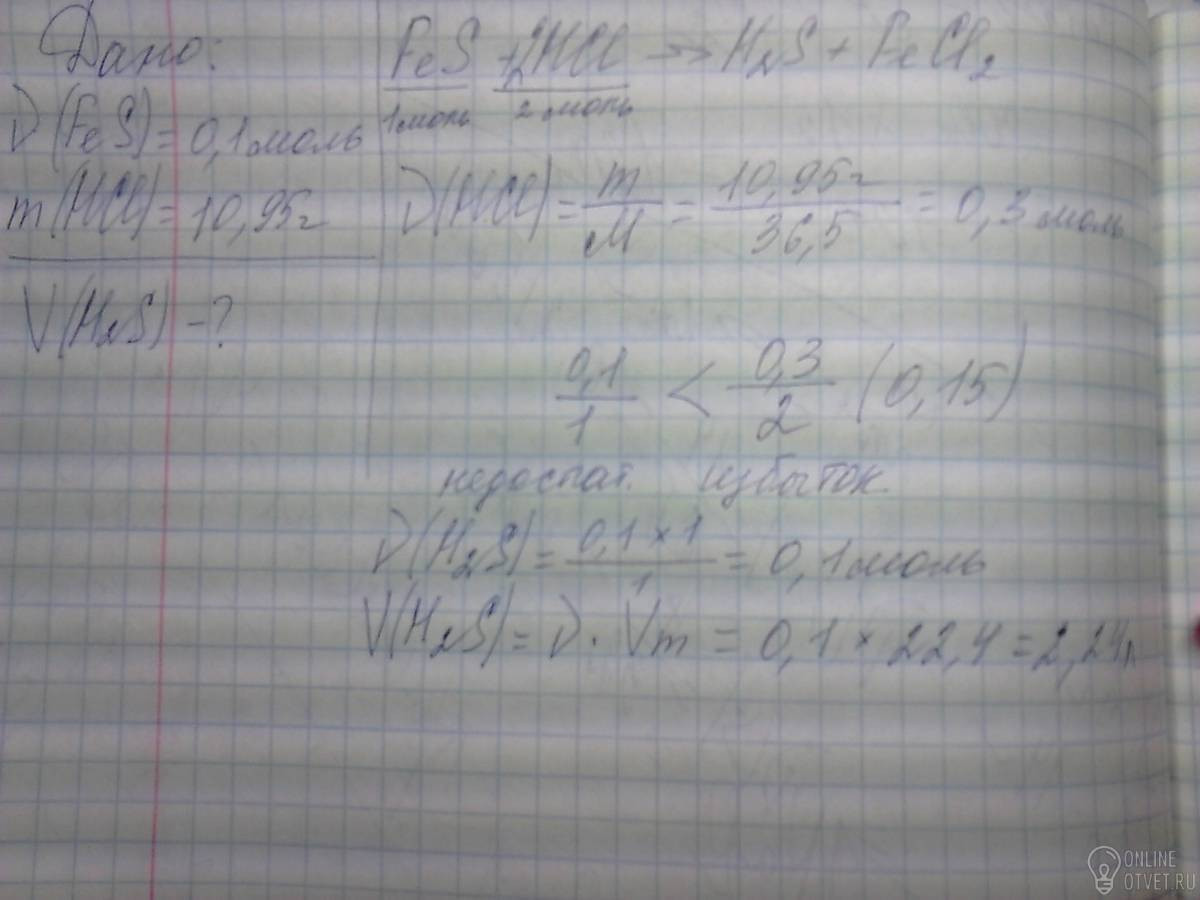 Дано:
ν(FeS) = 0,1 моль
m(HCl) = 10,95 г
V(H₂S) - ?
FeS + 2HCl → H₂S + FeCl₂
1 моль 2 моль
ν(HCl) = m/M = 10,95 г/36,5 = 0,3 моль
0,1/1 < 0,3/2 (0,15)
недостат. избыток
ν(H₂S) = 0,1 × 1/1 = 0,1 моль
V(H₂S) = ν · Vm = 0,1 × 22,4 = 2,24 л
ONLINE
OTVET.RU